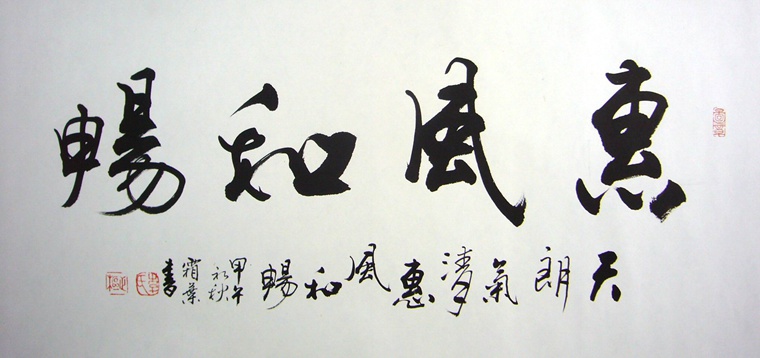 惠風和暢
天朗氣淸惠風和暢
甲午
初秋
霜葉
書